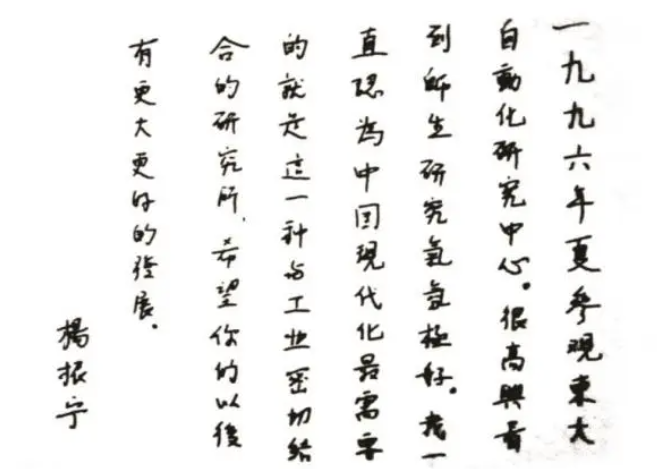 一九九六年夏參观東大
自動化研究中心。很高興看
到師生研究氣氛極好。我一
直認为中国現代化最需要
的就是這一种与工业密切结
合的研究所,希望你们以後
有更大更好的發展。
楊振宁